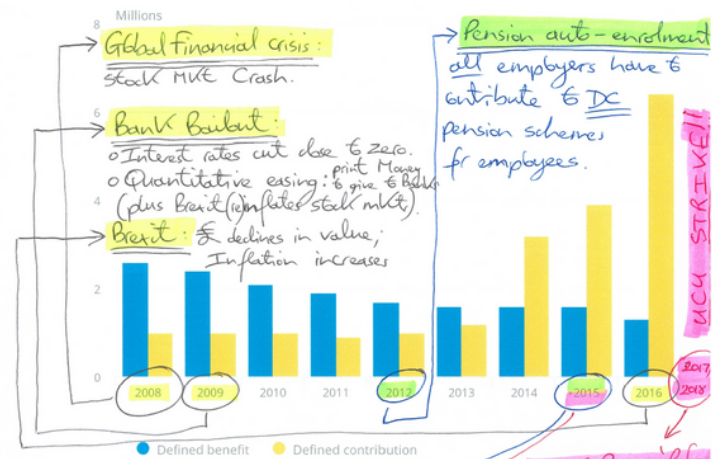 Millions
8
6
4
2
0
Global Financial crisis:
stock MKt Crash.
Bank Bailout:
o Interest rates cut close to zero.
o Quantitative easing: print Money
to give to Banks
(plus Brexit (re)inflates stock mkt).
Brexit: £ declines in value;
Inflation increases
Pension auto-enrolment
all employers have to
contribute to DC
pension schemes
for employees.
UCU STRIKE!!
2017,
2018
2008 2009 2010 2011 2012 2013 2014 2015 2016
Defined benefit Defined contribution